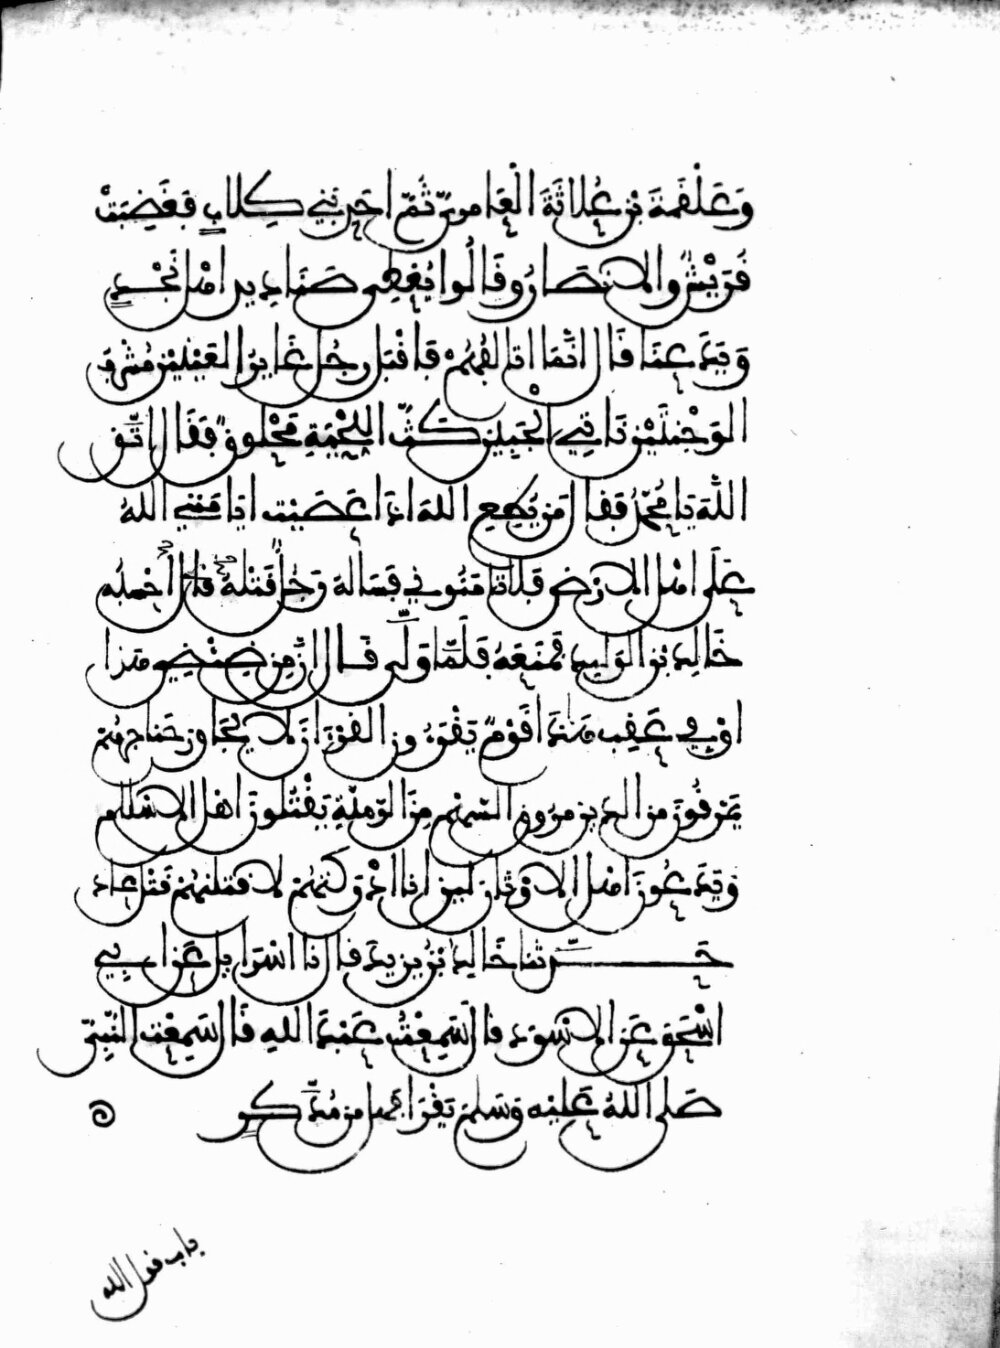 وَعَلْقَمَةَ بْنِ عُلاثَةَ الْعَامِرِيِّ ثُمَّ احَدِ بَنِي كِلابٍ فَغَضِبَتْ
قُرَيْشٌ وَالانصَارُ وَقَالُوا يُعْطِي صَنَادِيدَ اهْلِ نَجْدٍ
وَيَدَعنَا قَالَ انَّمَا اتالفُهُمْ فَاقْبَلَ رَجُلٌ غَايرُ العَيْنَيْنِ مُشْرِفُ
الوَجْنَتَيْنِ نَاتِئُ الْجَبِينِ كَثُّ اللِّحْيَةِ مَحْلُوقٌ فَقَالَ اتَّقِ
اللَّهَ يَا مُحَمَّدُ فَقَالَ مَن يُطِعِ اللهَ اذَا عَصَيْت ايَامَنُنِي اللهُ
عَلَى اهْلِ الارْضِ فَلا تامَنُونِي فَسَالَهُ رَجُلٌ قَتْلَهُ قال أحْسبُه
خَالِد بْن الوَلِيدِ فَمَنَعَهُ فَلَمَّا وَلَّى قَالَ انَّ مِن ضِئْضِئِ هَذا
اوْ فِي عَقِبِ هَذَا قَوْمٌ يَقْرَءُونَ القُرْآنَ لا يُجَاوِز حَنَاجِرَهُمْ
يَمْرقُونَ مِنَ الدِينِ مُرُوقَ السَّهْمِ مِنَ الرَّمِيَّةِ يَقْتُلُونَ اهْلَ الاسْلامِ
وَيَدَعُونَ اهْلَ الاوْثَانِ لَيِنْ انَا ادْرَكْتُهُمْ لاقتلنهُمْ قَتْلَ عَاد
حَدَّثنا خَالِدُ بْنُ يزِيدَ قال نا اسْرَايل عَن ابِي
اسْحَقَ عَنِ الاسْوَدِ قال سَمِعْتُ عَبْدَ اللهِ قَالَ سَمِعْت النَّبِيَّ
صَلى اللهُ عَلَيْهِ وَسَلمَ يَقْرَا فهل من مُدَّكر
باب قول الله